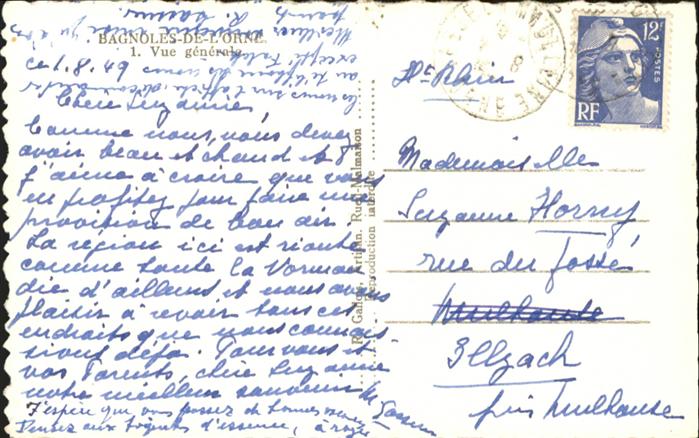 BAGNOLES-DE-L'ORNE
1. Vue générale.
ce 1.8.49
Chère Suzanne
Comme nous, vous devez
avoir beau et chaud et
j'aime à croire que vous
en profitez pour faire une
provision de bon air.
La région ici est riante
comme toute la Norman
die d'ailleurs et nous avons
plaisir à revoir tous ces
endroits que nous connais
sions déjà. Pour vous et
vos Parents, chère Suzanne
notre meilleur souvenir
J'espère que vous passez de bonnes
Pensez aux d'essence,
R. Gallois, Artisan, Rueil-Malmaison
Reproduction interdite
12F
POSTES
RF
Ht Rhin
Mademoiselle
Suzanne Horny
rue du fossé
Mulhouse
Illzach
près Mulhouse